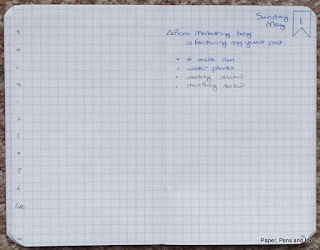 Sunday
May
1
△ Book Marketing blog
is featuring my guest post.
• 4 mile run
• water plants
• weekly review
• monthly review
9
10
11
12
1
2
3
4
5
6
Eve
Paper, Pens and Ink